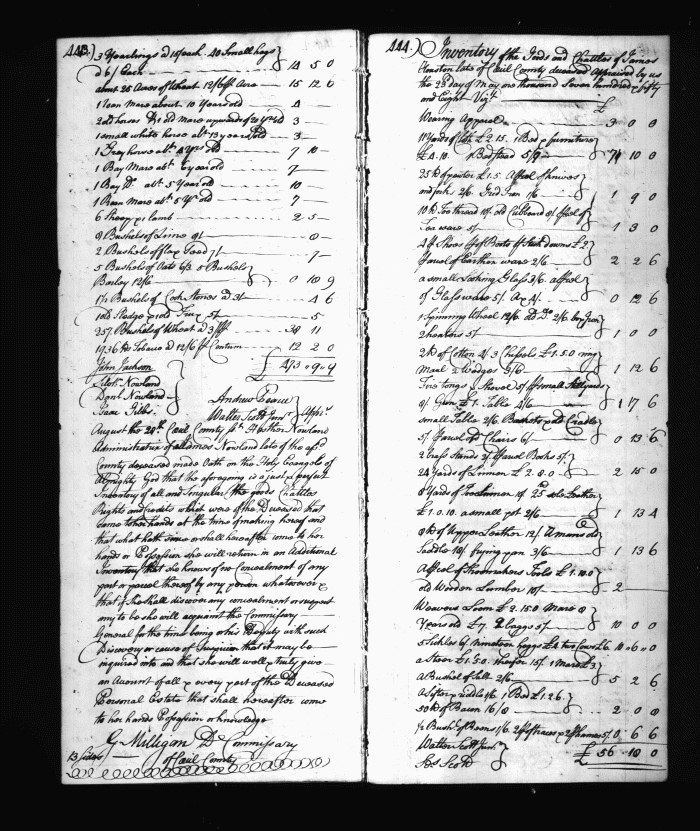 443)
3 Yearlings a 15/ each. 40 Small hogs
a 6/ Each 14 5 0
about 25 Acres of Wheat 12/6 Acre 15 12 6
1 Roan Mare about 10 Years old 4
3
1 small white horse abt. 13 years old 3
1 Gray horse abt. 4 yrs old 7 10
1 Bay Mare abt. 6 years old 7
1 Bay Do. abt. 5 Years old 10
1 Roan Mare abt. 5 Yrs old 7
6 Sheep & 1 lamb 2 5
8 Bushels of Lime 8/ 8
2 Bushels of flax Seed 7/ 7
5 Bushels of Oats 6/3 5 Bushels
Barley 12/6 0 18 9
1½ Bushels of Cock Stones a 3/ 4 6
1 old Sledge 5/ 5
257 Bushels of Wheat a 3/ 38 11
1936 lb Tobacco a 12/6 Centum 12 2 0
John Jackson £ 473 9 4
Nowland
Danl. Nowland Andrew Pearce
Isaac Gibbs Walter Scott Junr. Apprs.
August the 28th. Cecil County Sct. Hester Nowland
Administratrix of James Nowland late of the afd.
County deceased made Oath on the Holy Evangels of
Almighty God that the aforegoing is a just & perfect
Inventory of all and Singular the goods Chattles
Rights and credits which were of the Deceased that
came to her hands at the time of making hereof and
that what hath since or shall hereafter come to her
hands or Possession she will return in an Additional
Inventory that she knows of no Concealment of any
part or parcel thereof by any person whatsoever &
that if she shall discover any concealment or suspect
any to be she will acquaint the Commissary
General for the time being or his Deputy with such
Discovery or cause of Suspicion that it may be
inquired into and that she will well & truly give
an Account of all & every part of the Deceased
Personal Estate that shall hereafter come
to her hands Possession or knowledge
G Milligan D Commissary
13 Sides of Cecil County
444) Inventory of the Goods and Chattles of James
Huston late of Cecil County deceased Appraised by us
the 23d day of May one thousand Seven hundred & fifty
and Eight Vizt. £
Wearing Apparel 3 0 0
11 Yards of £2.15. 1 Bed & furniture
£4.10. 1 Bedstead 5/9 7 10 0
25 lb of pewter £1.5. A ffel of knives
and forks 2/6 Grid Iron 1/6 1 9 0
old Cubboard 8/ a ffel of
Tea ware 5/ 1 3 0
Parcel of Earthen ware 2/6 2 2 6
a small Looking Glass 3/6
of Glass ware 5/. Ax 4/ 0 12 6
1 Spinning Wheel 12/6 old Do. 2/6
5/ 1 0 0
2 lb of Cotton 4/3 Chissels £1.5.0 ring
Maul 2 Wedges 3/6 1 12 6
Fire tongs & Shovel
8/. Gun £1. Table 4/6 1 17 6
small Table 2/6. Baskets & old Cradle
5/ Parcel old Chairs 6/ 0 13 6
2 Glass Stands 2/ Parcel Books 5/
24 Yards of Linnen £2.8.0 2 15 0
8 Yards of Tow Linnen 10/
£1.0.10. a small pot 2/6 1 13 4
8 lb of Upper Leather 12/ A mans old
Saddle 18/ frying pan 3/6 1 13 6
A ffcel of Shoemakers Tools £1.10.0
old Wooden Lumber 10/ 2
Weavers Loom £2.15.0 Mare 8
Years old £7. 2 baggs 5/ 10 0 0
5 Sickles 6/ nineteen hoggs £4 two Cows £6. 10 6 0
a Steer £1.5.0. Heifer 15/. 1 Mare £3
A Bushel of Salt 2/6 5 2 6
1 Bed £1.2.6.
50 lb of Bacon 16/8 2 0 0
½ Bushl. of Beans 1/6. 0 6 6
Walter Scott Junr. £ 56 18 0
Scott